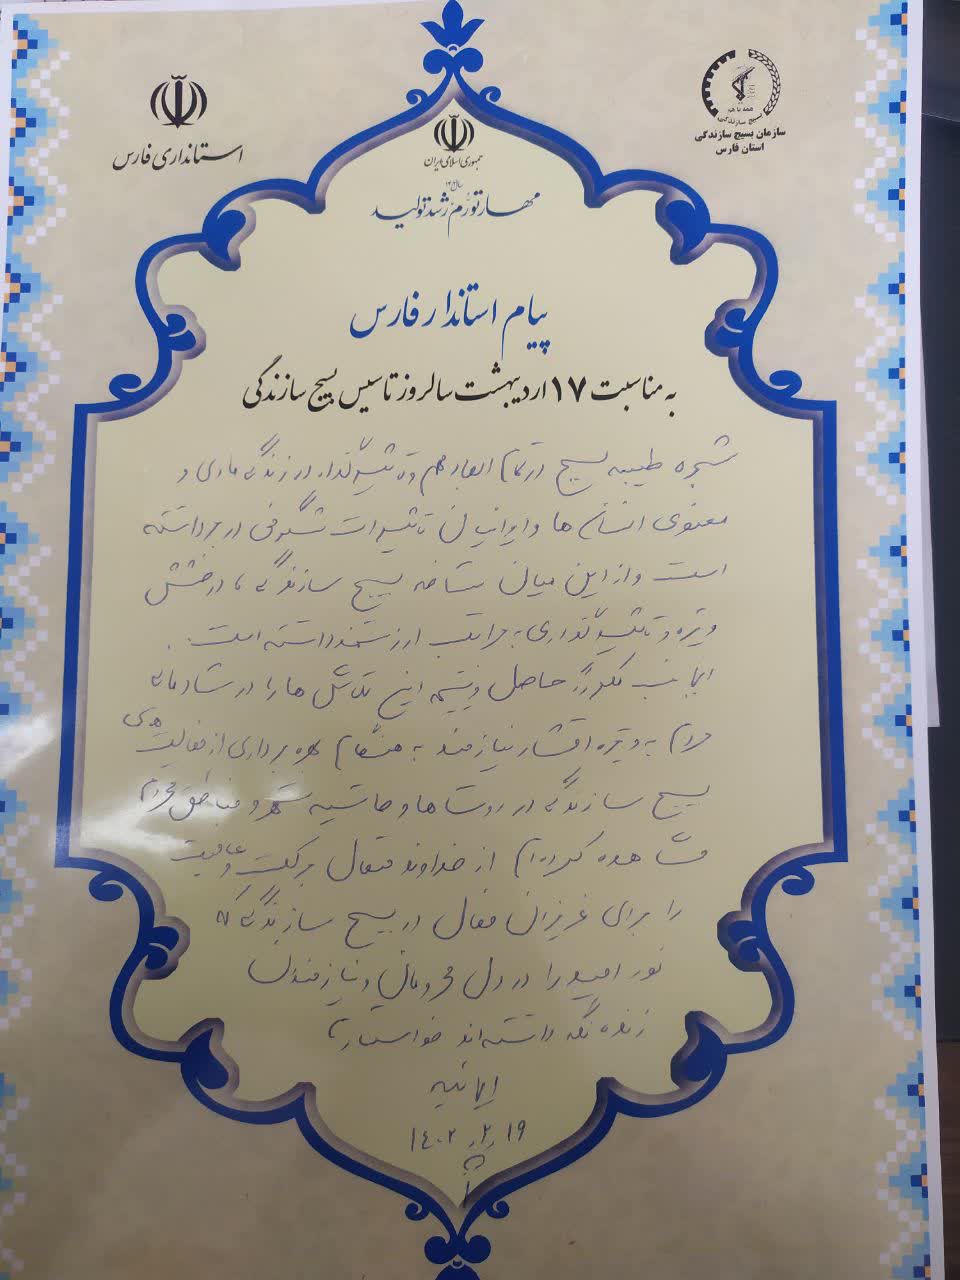 استانداری فارس
همه با هم
بسیج سازندگی
سازمان بسیج سازندگی
استان فارس
جمهوری اسلامی ایران
سال ۱۴۰۲
مهار تورم، رشد تولید
پیام استاندار فارس
به مناسبت ۱۷ اردیبهشت سالروز تاسیس بسیج سازندگی
شجره طیبه بسیج در تمام ابعاد مهم و تاثیرگذار در زندگی مادی و
معنوی انسان ها و ایرانیان تاثیرات شگرفی در بر داشته
است و از این میان شاخه بسیج سازندگی، درخشش
ویژه و تاثیرگذاری به مراتب ارزشمند داشته است.
اینجانب مکرراً حاصل و نتیجه این تلاش ها را در شادمانی
مردم به ویژه اقشار نیازمند به هنگام بهره برداری از فعالیت های
بسیج سازندگی در روستاها و حاشیه شهر و مناطق محروم
مشاهده کرده ام از خداوند متعال برکت و عافیت
را برای عزیزان فعال در بسیج سازندگی که
نور امید را در دل محرومان و نیازمندان
زنده نگه داشته اند خواستارم
ایمانیه
۱۴۰۲٫۲٫۱۹